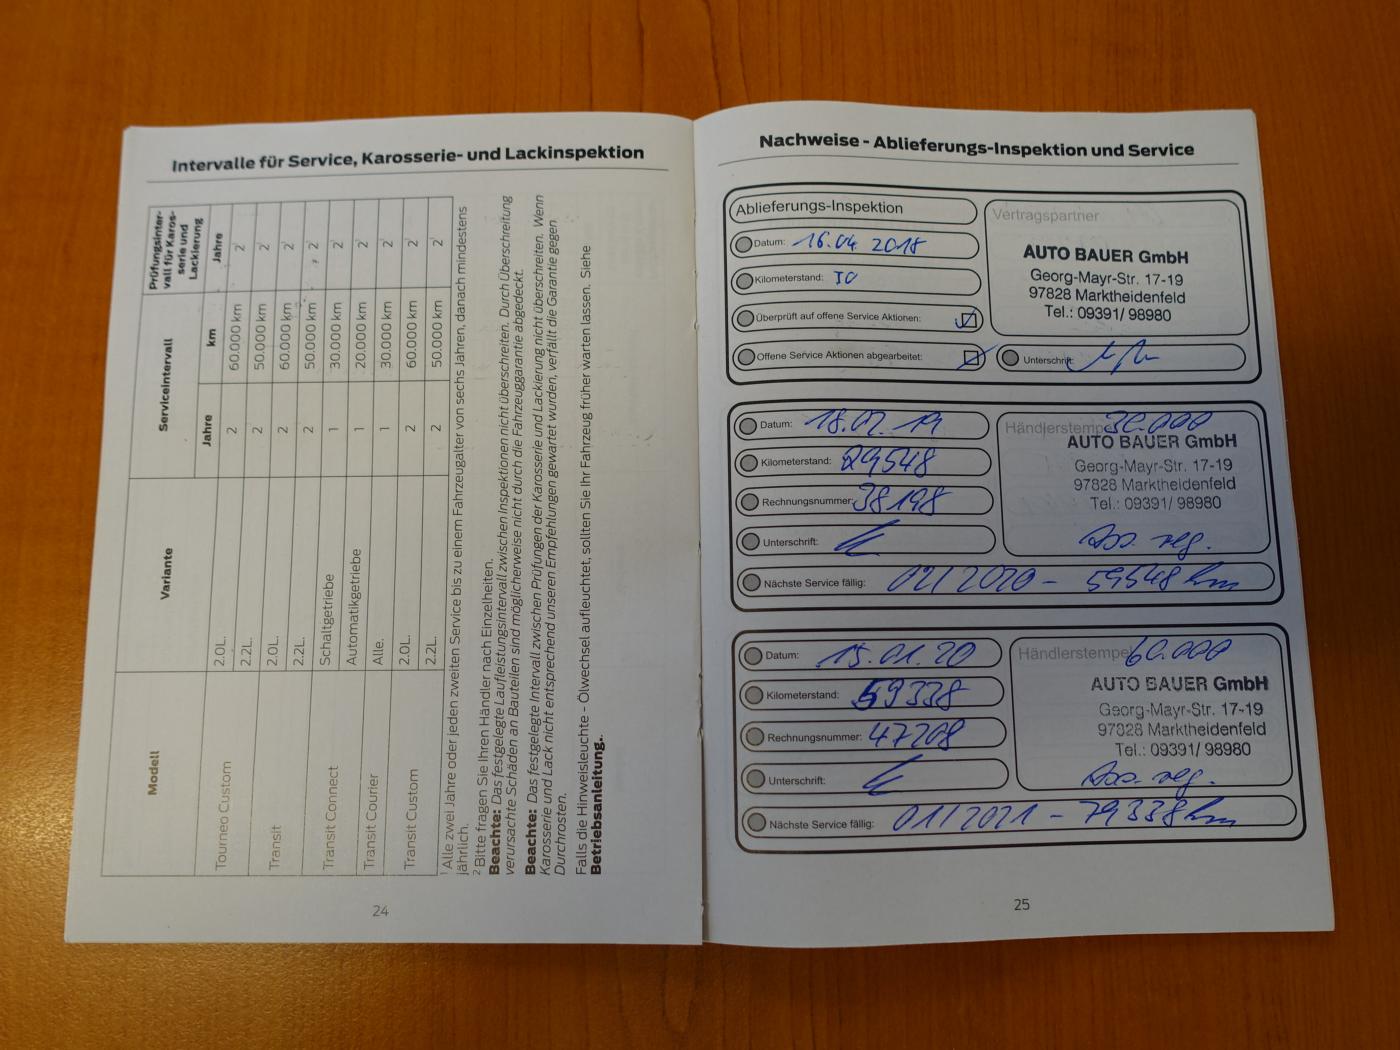 Intervalle für Service, Karosserie- und Lackinspektion
Modell Variante Serviceintervall Prüfungsinter-
vall für Karos-
serie und
Lackierung
Jahre km Jahre
Tourneo Custom 2.0L. 2 60.000 km 2²
2.2L. 2 50.000 km 2²
Transit 2.0L. 2 60.000 km 2²
2.2L. 2 50.000 km 2²
Transit Connect Schaltgetriebe 1 30.000 km 2²
Automatikgetriebe 1 20.000 km 2²
Transit Courier Alle. 1 30.000 km 2²
Transit Custom 2.0L. 2 60.000 km 2²
2.2L. 2 50.000 km 2²
¹ Alle zwei Jahre oder jeden zweiten Service bis zu einem Fahrzeugalter von sechs Jahren, danach mindestens
jährlich.
² Bitte fragen Sie Ihren Händler nach Einzelheiten.
Beachte: Das festgelegte Laufleistungsintervall zwischen Inspektionen nicht überschreiten. Durch Überschreitung
verursachte Schäden an Bauteilen sind möglicherweise nicht durch die Fahrzeuggarantie abgedeckt.
Beachte: Das festgelegte Intervall zwischen Prüfungen der Karosserie und Lackierung nicht überschreiten. Wenn
Karosserie und Lack nicht entsprechend unseren Empfehlungen gewartet wurden, verfällt die Garantie gegen
Durchrosten.
Falls die Hinweisleuchte - Ölwechsel aufleuchtet, sollten Sie Ihr Fahrzeug früher warten lassen. Siehe
Betriebsanleitung.
24
Nachweise - Ablieferungs-Inspektion und Service
Ablieferungs-Inspektion
Datum: 16.04.2018
Kilometerstand: 10
Überprüft auf offene Service Aktionen:
Offene Service Aktionen abgearbeitet:
Vertragspartner
AUTO BAUER GmbH
Georg-Mayr-Str. 17-19
97828 Marktheidenfeld
Tel.: 09391/ 98980
Unterschrift:
Datum: 18.02.19
Kilometerstand: 29548
Rechnungsnummer: 38198
Unterschrift:
Händlerstempel 30.000
AUTO BAUER GmbH
Georg-Mayr-Str. 17-19
97828 Marktheidenfeld
Tel.: 09391/ 98980
Ass. reg.
Nächste Service fällig: 02/2020 - 59548 km
Datum: 15.01.20
Kilometerstand: 59338
Rechnungsnummer: 47208
Unterschrift:
Händlerstempel 60.000
AUTO BAUER GmbH
Georg-Mayr-Str. 17-19
97828 Marktheidenfeld
Tel.: 09391/ 98980
Ass. reg.
Nächste Service fällig: 01/2021 - 79338 km
25